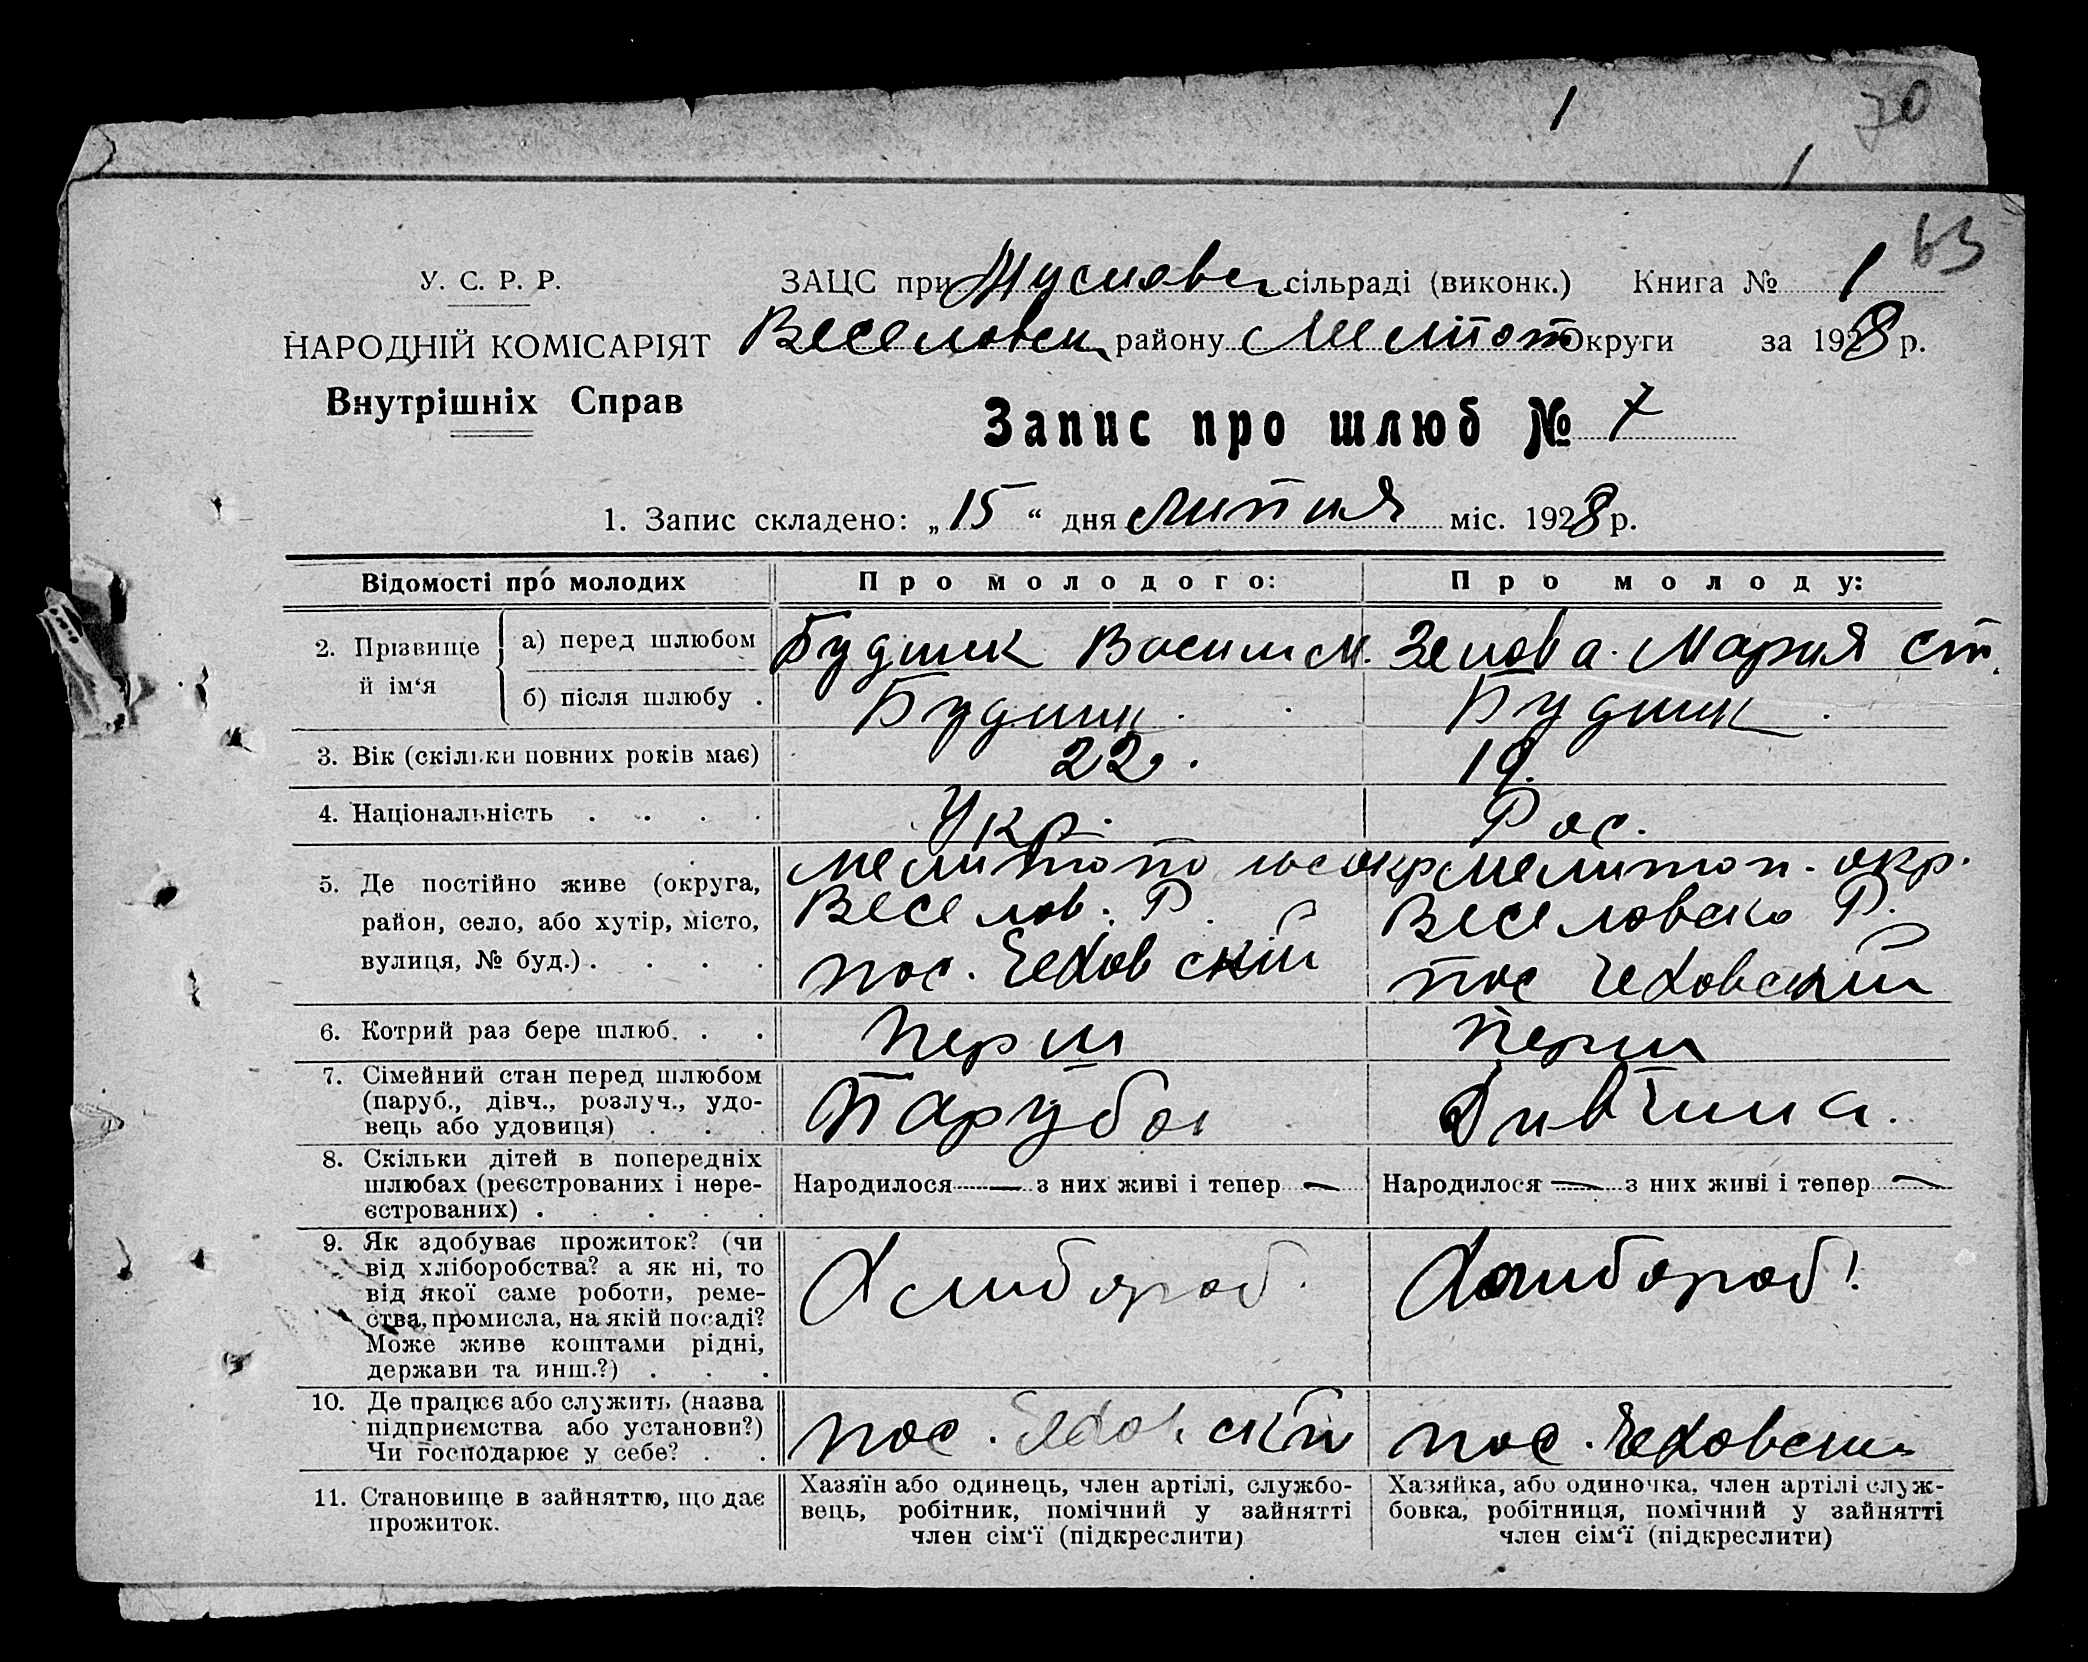 1
70
63
У. С. Р. Р.
ЗАЦС при сільраді (виконк.) Книга № 1
НАРОДНІЙ КОМІСАРІЯТ
Веселовск району Меліт Округи за 1928 р.
Внутрішніх Справ
Запис про шлюб № 7
1. Запис складено: „15“ дня липня міс. 1928 р.
Відомості про молодих Про молодого: Про молоду:
2. Прізвище й ім‘я
а) перед шлюбом Будник Васили М. Зенова Мария Ст.
б) після шлюбу . Будник. Будник.
3. Вік (скільки повних років має) 22. 19.
4. Національність . . . . Укр. Рос.
5. Де постійно живе (округа, район, село, або хутір, місто, вулиця, № буд.) . . . .
Мелитопольс окр
Веселов. Р.
пос. Чеховский
Мелитоп. окр.
Веселовско Р.
пос Чеховский
6. Котрий раз бере шлюб. . . Перш Перш
7. Сімейний стан перед шлюбом
(паруб., дівч., розлуч., удо-
вець або удовиця) . . .
Парубок
Дивчина.
8. Скільки дітей в попередніх
шлюбах (реєстрованих і нере-
єстрованих) . . . . .
Народилося — з них живі і тепер —
Народилося — з них живі і тепер —
9. Як здобуває прожиток? (чи
від хліборобства? а як ні, то
від якої саме роботи, реме-
ства, промисла, на якій посаді?
Може живе коштами рідні,
держави та инш.?) . . .
Хлибороб.
Хлибороб.
10. Де працює або служить (назва
підприємства або установи?)
Чи господарює у себе? . .
пос. Чеховский
пос. Чеховски
11. Становище в зайняттю, що дає
прожиток.
Хазяїн або одинець, член артілі, службо-
вець, робітник, помічний у зайнятті
член сім‘ї (підкреслити)
Хазяйка, або одиночка, член артілі служ-
бовка, робітниця, помічний у зайнятті
член сім‘ї (підкреслити)